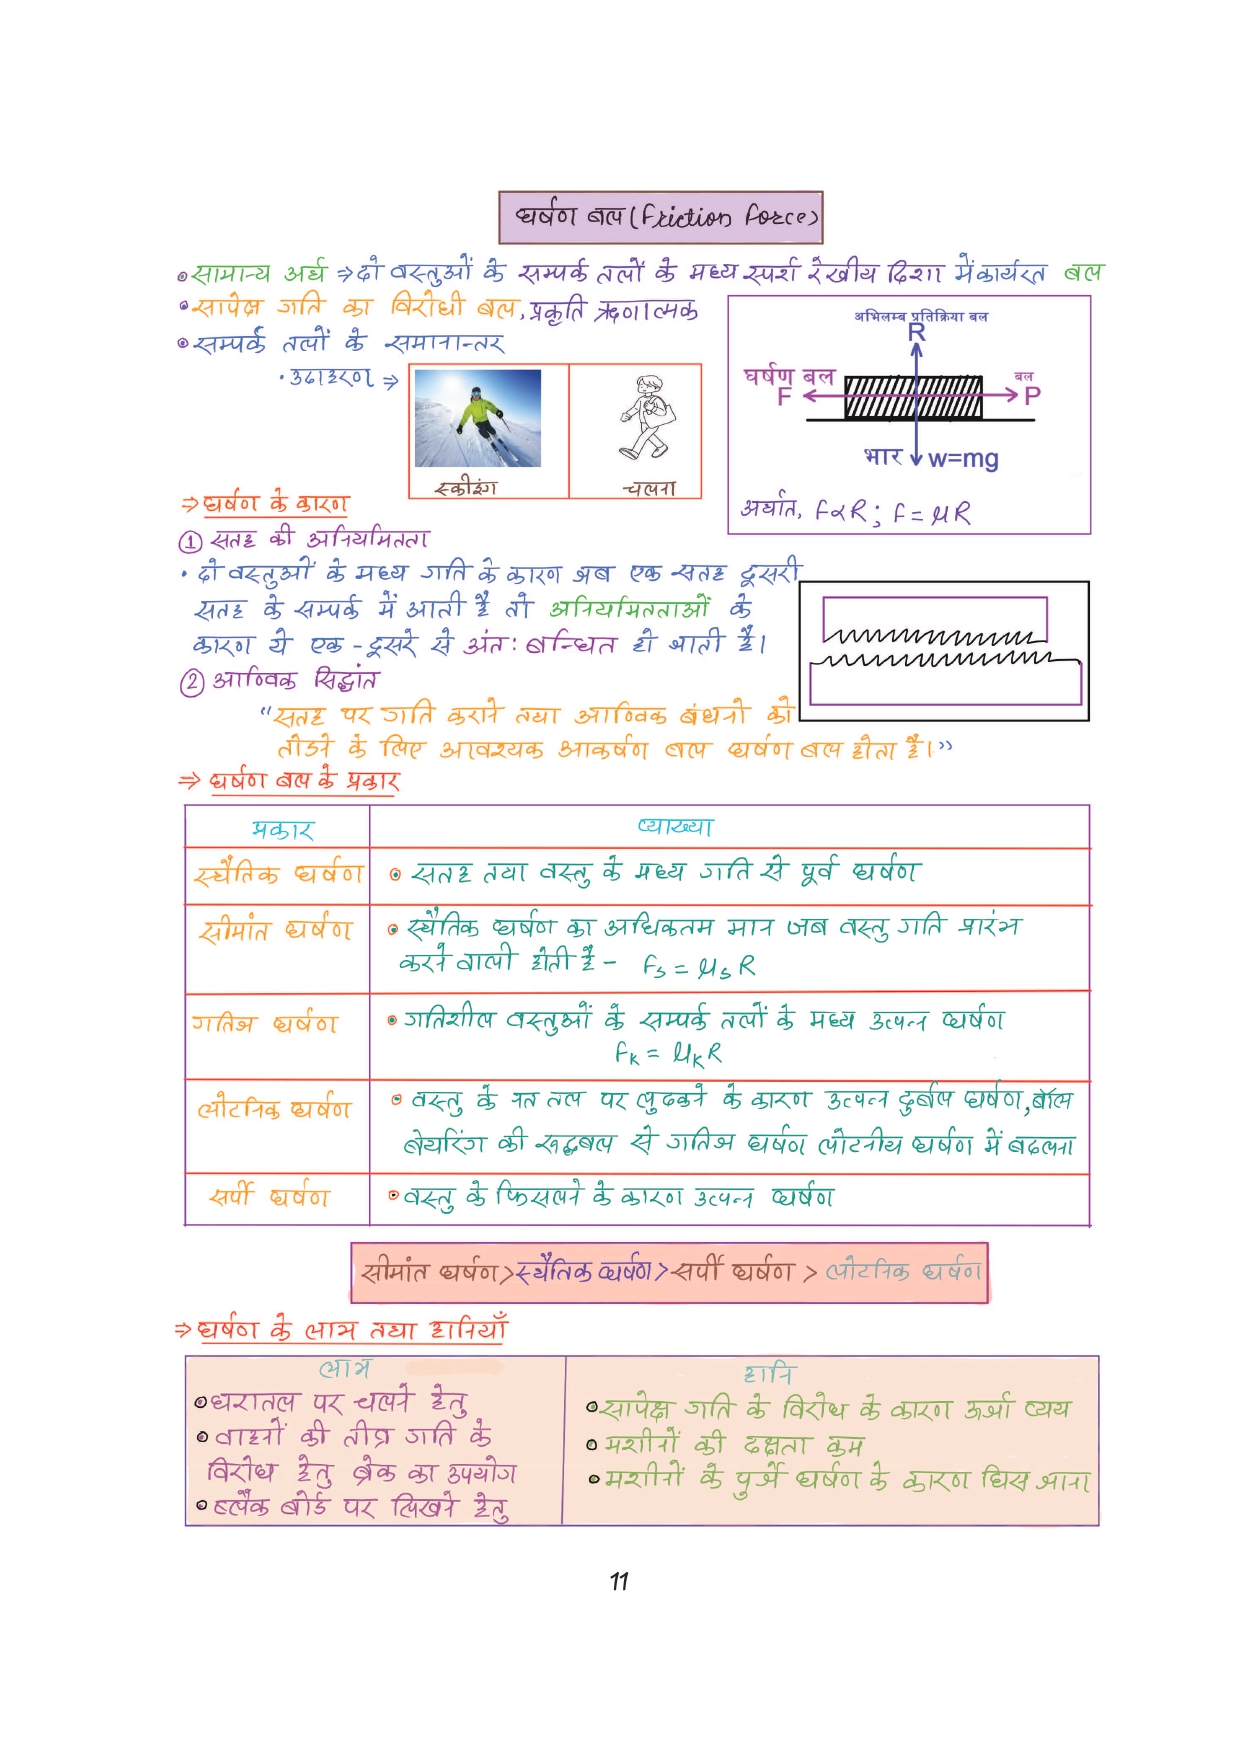 घर्षण बल (Friction Force)
• सामान्य अर्थ ⇒ दो वस्तुओं के सम्पर्क तलों के मध्य स्पर्श रेखीय दिशा में कार्यरत बल
• सापेक्ष गति का विरोधी बल, प्रकृति ऋणात्मक
• सम्पर्क तलों के समानान्तर
• उदाहरण ⇒
स्कीइंग
चलना
अभिलम्ब प्रतिक्रिया बल
R
घर्षण बल
F
बल
P
भार w=mg
अर्थात, F∝R ; F = μR
⇒ घर्षण के कारण
① सतह की अनियमितता
• दो वस्तुओं के मध्य गति के कारण जब एक सतह दूसरी
सतह के सम्पर्क में आती है तो अनियमितताओं के
कारण ये एक-दूसरे से अंतः बन्धित हो जाती है।
② आण्विक सिद्धांत
"सतह पर गति कराने तथा आण्विक बंधनो को
तोडने के लिए आवश्यक आकर्षण बल घर्षण बल होता है।"
⇒ घर्षण बल के प्रकार
प्रकार व्याख्या
स्थैतिक घर्षण • सतह तथा वस्तु के मध्य गति से पूर्व घर्षण
सीमांत घर्षण • स्थैतिक घर्षण का अधिकतम मान जब वस्तु गति प्रारंभ
करने वाली होती है - Fs = μs R
गतिज घर्षण • गतिशील वस्तुओं के सम्पर्क तलों के मध्य उत्पन्न घर्षण
FK = μK R
लोटनिक घर्षण • वस्तु के नत तल पर लुढकने के कारण उत्पन्न दुर्बल घर्षण, बॉल
बेयरिंग की रूद्धबल से गतिज घर्षण लोटनीय घर्षण में बदलना
सर्पी घर्षण • वस्तु के फिसलने के कारण उत्पन्न घर्षण
सीमांत घर्षण > स्थैतिक घर्षण > सर्पी घर्षण > लोटनिक घर्षण
⇒ घर्षण के लाभ तथा हानियाँ
लाभ
• धरातल पर चलने हेतु
• वाहनों की तीव्र गति के
विरोध हेतु ब्रेक का उपयोग
• ब्लैक बोर्ड पर लिखने हेतु
हानि
• सापेक्ष गति के विरोध के कारण ऊर्जा व्यय
• मशीनों की दक्षता कम
• मशीनों के पुर्जे घर्षण के कारण घिस जाना
11